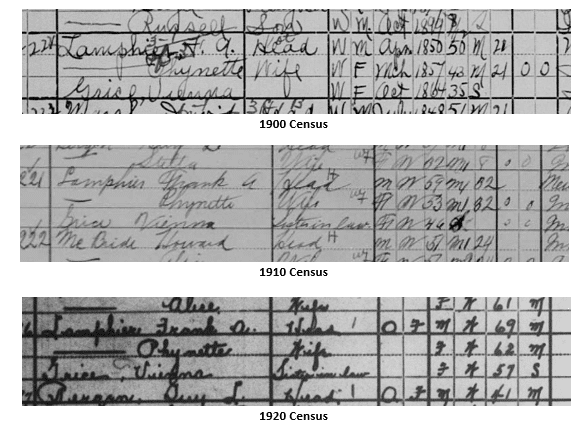 Russell Son W M Oct 1894
Lamphier F. A. Head W M Apr 1850 50 M 21
Phynette Wife W F Mch 1857 43 M 21 0 0
Grice Vienna W F Oct 1864 35 S
1900 Census
Stella Wife F W M 8 0 0
221 Lamphier Frank A Head M W 59 M1 32
Phynette Wife F W 53 M1 32 0 0
Grice Vienna Sister in law F W 46 S 0 0
222 McBride Howard Head M W 51 M1 24
1910 Census
Alice Wife F W 61 M
Lamphier Frank A. Head 1 O F M W 69 M
Phynette Wife F W 62 M
Grice, Vienna Sister in law F W 57 S
Guy L. Head 1 O F M W 41 M
1920 Census